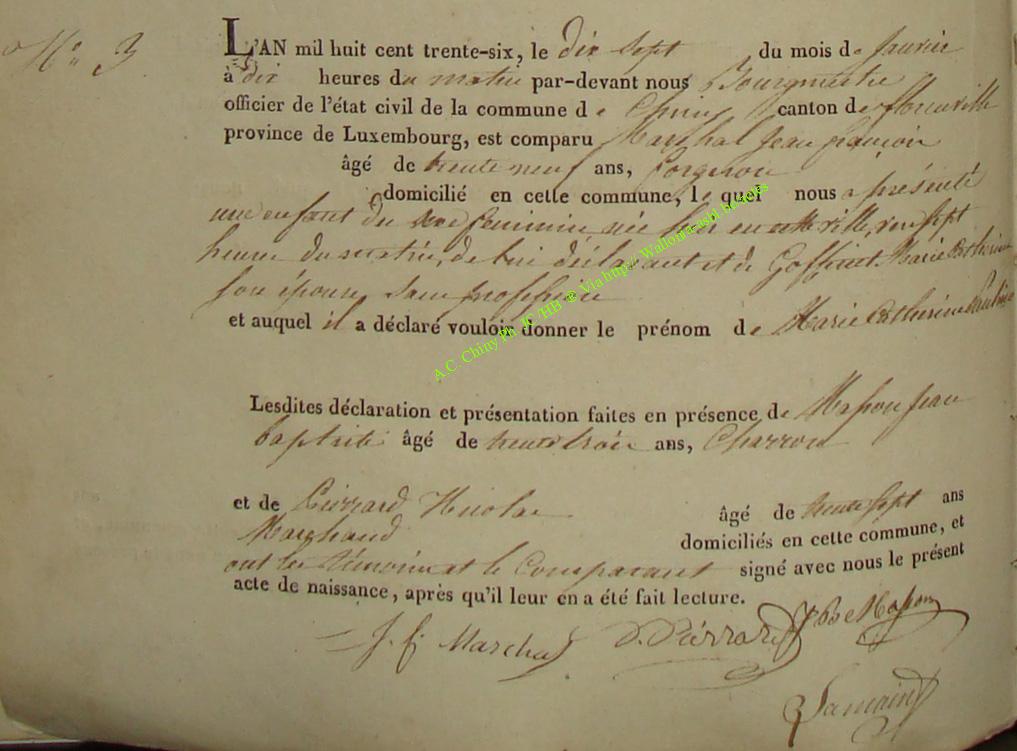 N° 3
L'AN mil huit cent trente-six, le dix sept du mois de Janvier
à dix heures du matin par-devant nous Bourgmestre
officier de l'état civil de la commune de Chiny canton de florenville
province de Luxembourg, est comparu Marchal Jean françois
âgé de trente neuf ans, forgeron
domicilié en cette commune, le quel nous a présenté
une enfant du sexe feminin née hier en cette ville, vers sept
heures du matin, de lui déclarant et de Goffinet Marie Catherine
son épouse sans profession
et auquel il a déclaré vouloir donner le prénom de Marie Catherine
A.C. Chiny Ph. JC. HB ® Via http://
Lesdites déclaration et présentation faites en présence de Masson Jean
baptiste âgé de trente trois ans, Charron
et de Pierrard Nicolas âgé de trente sept ans
Marchand domiciliés en cette commune, et
ont les témoins et le Comparant signé avec nous le présent
acte de naissance, après qu'il leur en a été fait lecture.
J. f. Marchal Pierrard JB Masson
Lamain